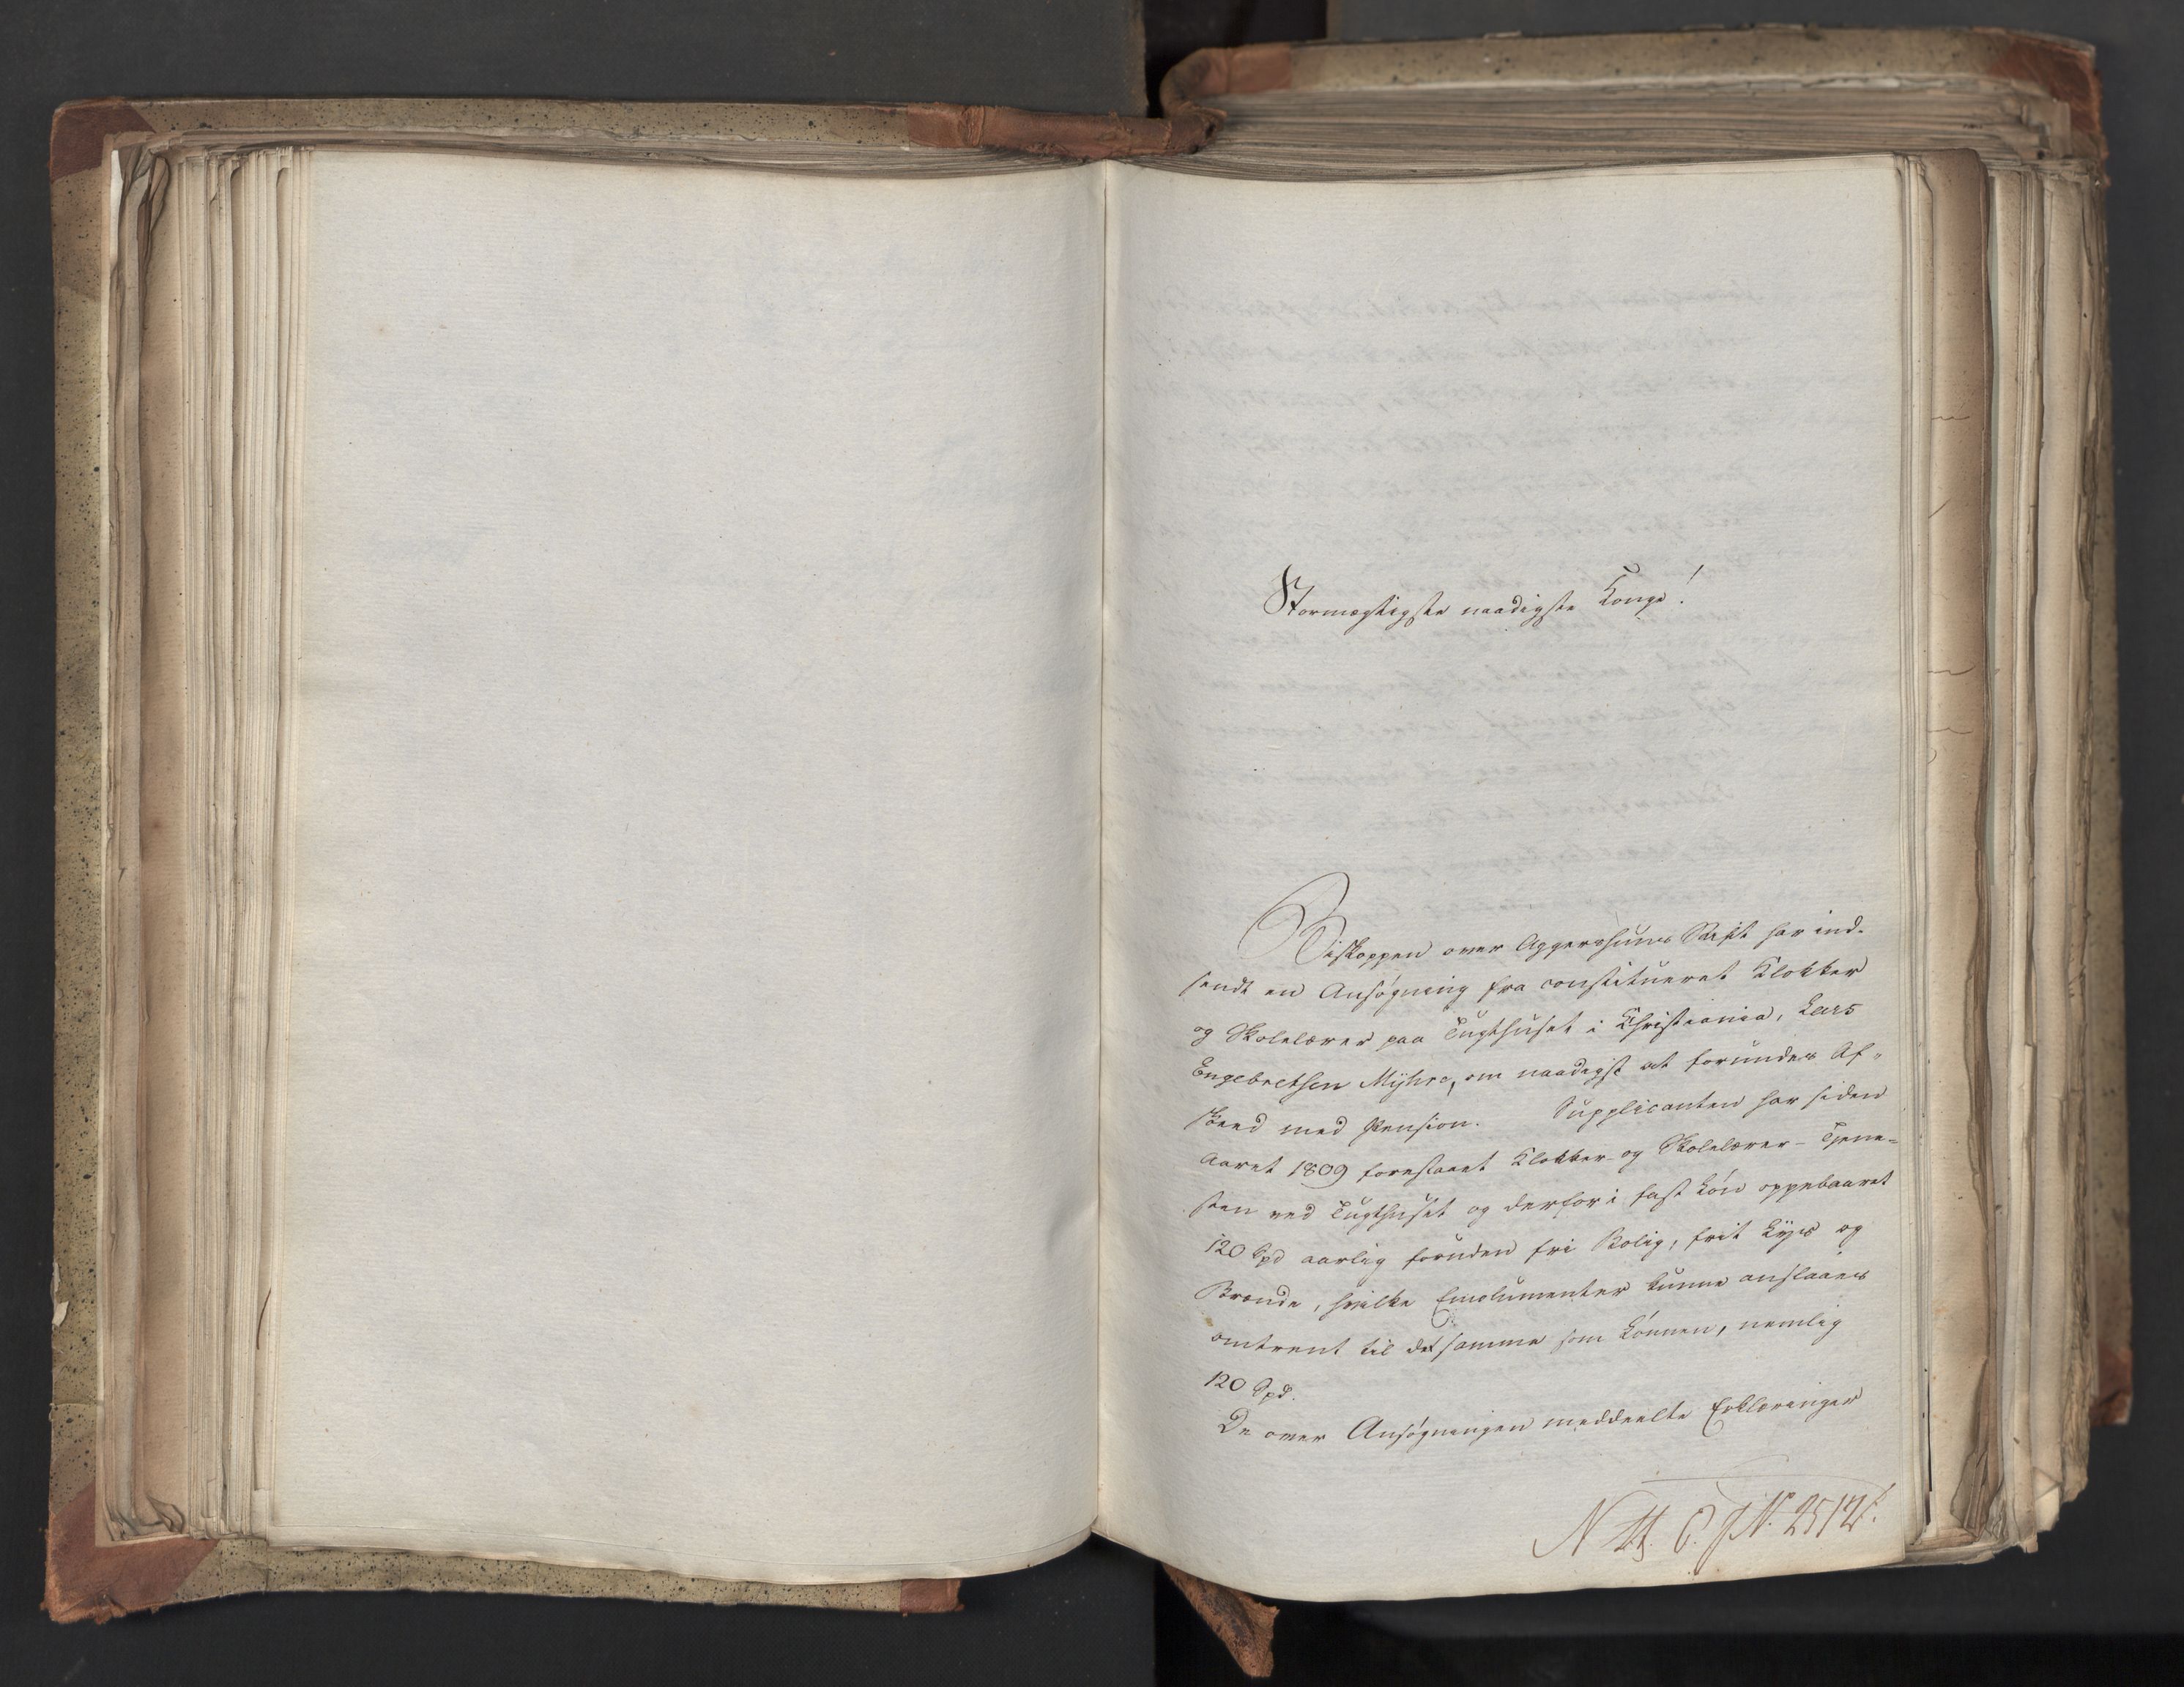 Stormægtigste naadigste Konge!
Biskoppen over Aggershuus Stift har ind-
sendt en Ansøgning fra constitueret Klokker
og Skolelærer paa Tugthuset i Christiania, Lars
Engebretsen Mÿhre, om naadigst at forundes Af-
skeed med Pension. Supplicanten har siden
Aaret 1809 forestaaet Klokker- og Skolelærer-Tjene-
sten ved Tugthuset og derfor i fast Løn oppebaaret
120 Spd aarlig foruden fri Bolig, frit Lÿs og
Brænde, hvilke Emolumenter kunne anslaaes
omtrent til det samme som Lønnen, nemlig
120 Spd.
De over Ansøgningen meddeelte Erklæringer
2512